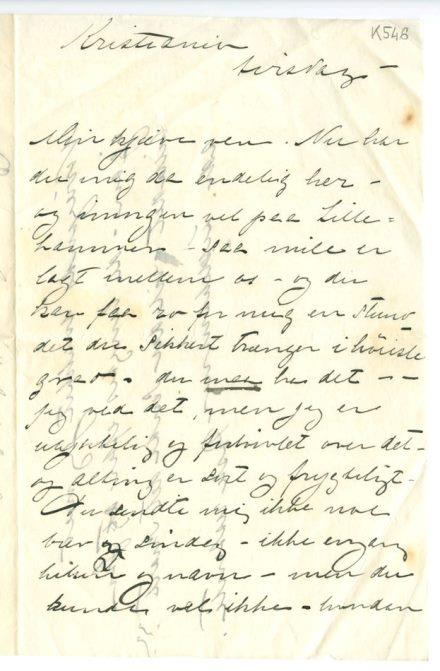 K548
Kristiania
tirsdag –
Min kjære ven. Nu har
du mig da endelig her –
og imorgen vel paa Lille=
hammer – saa mile er
lagt mellem os – og du
kan faa ro for mig en stund
det du sikkert trænger i høieste
grad – du maa ha det – –
jeg ved det, men jeg er
ulykkelig og fortvivlet over det –
og alting er sort og frygteligt –
Du sendte mig ikke noe
brev søndag – ikke engang
hilsen og navn – men du
kunde vel ikke – hvordan